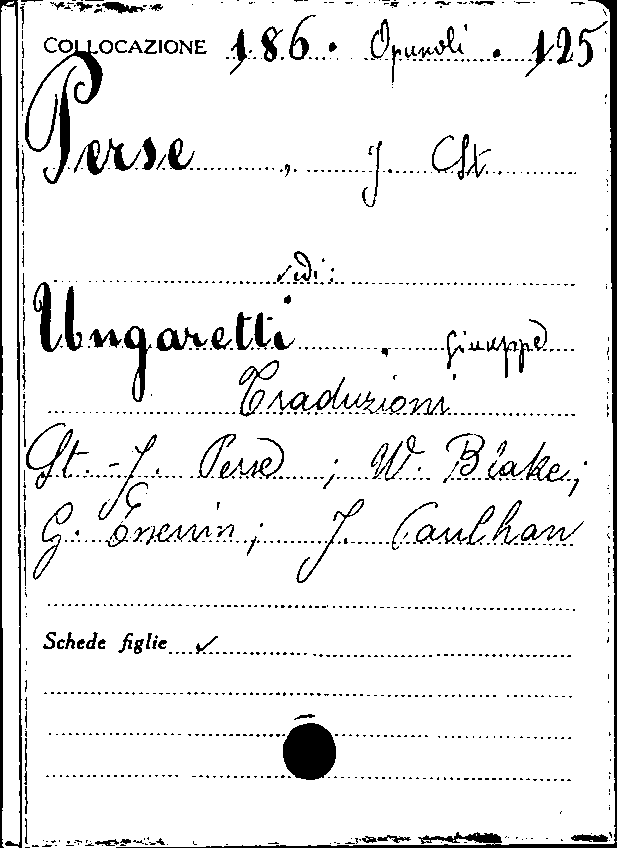 COLLOCAZIONE 186. Opuscoli. 125
Perse, J. St
vedi:
Ungaretti. Giuseppe
Traduzioni
St.-J. Perse; W. Blake;
G. Essenin; J. Paulhan
Schede figlie ✓